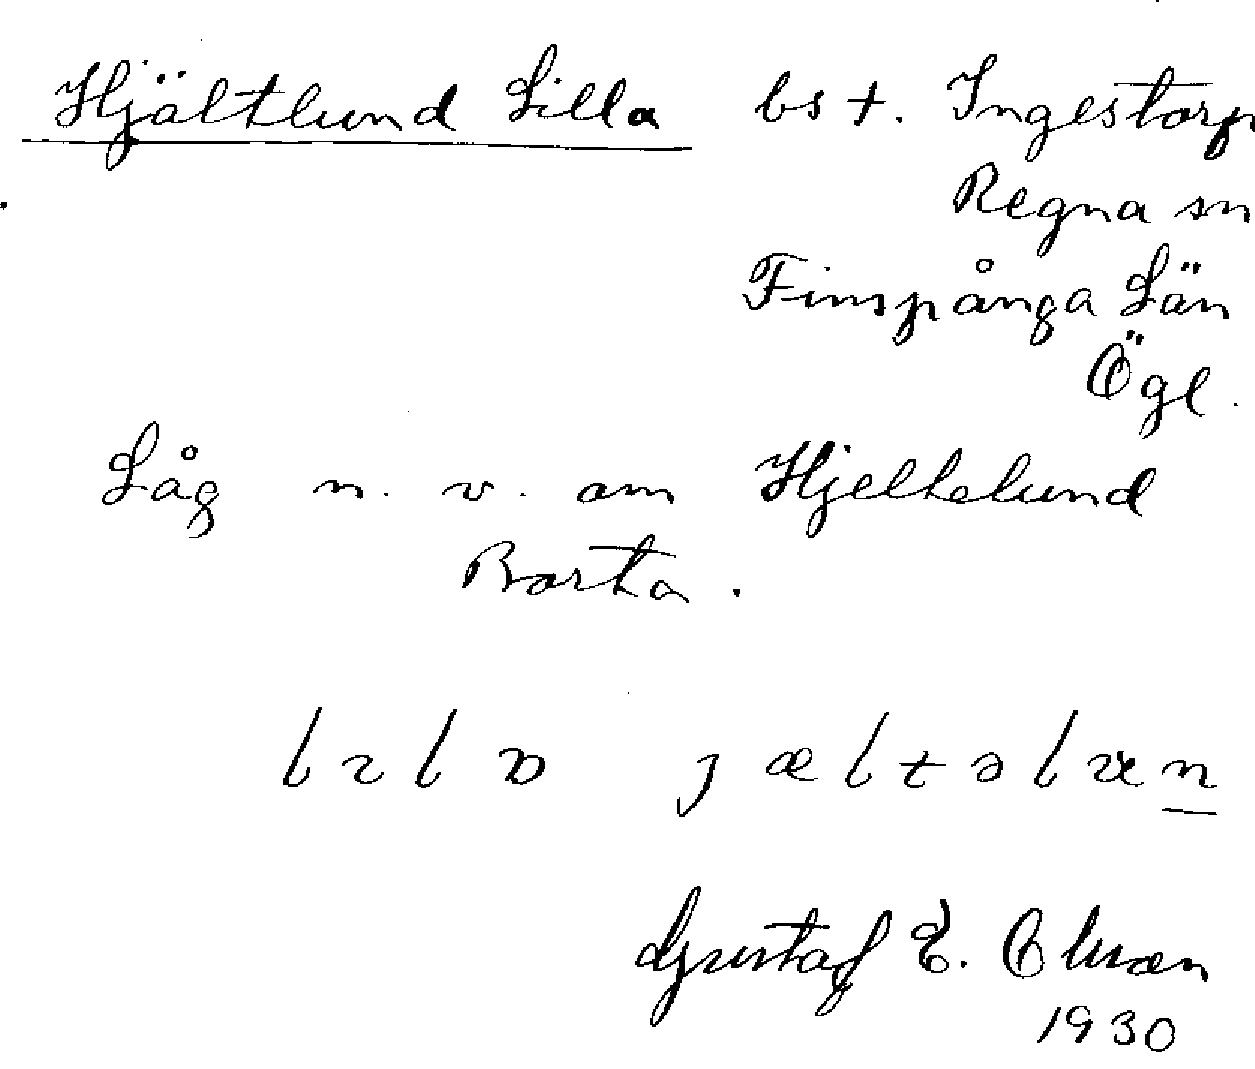 Hjältlund Lilla bst. Ingestorp
Regna sn
Finspånga Län
Ögl.
Låg n. v. om Hjeltelund
Borta.
lɩlɒ jæltəlɯn
Gustaf E.
1930